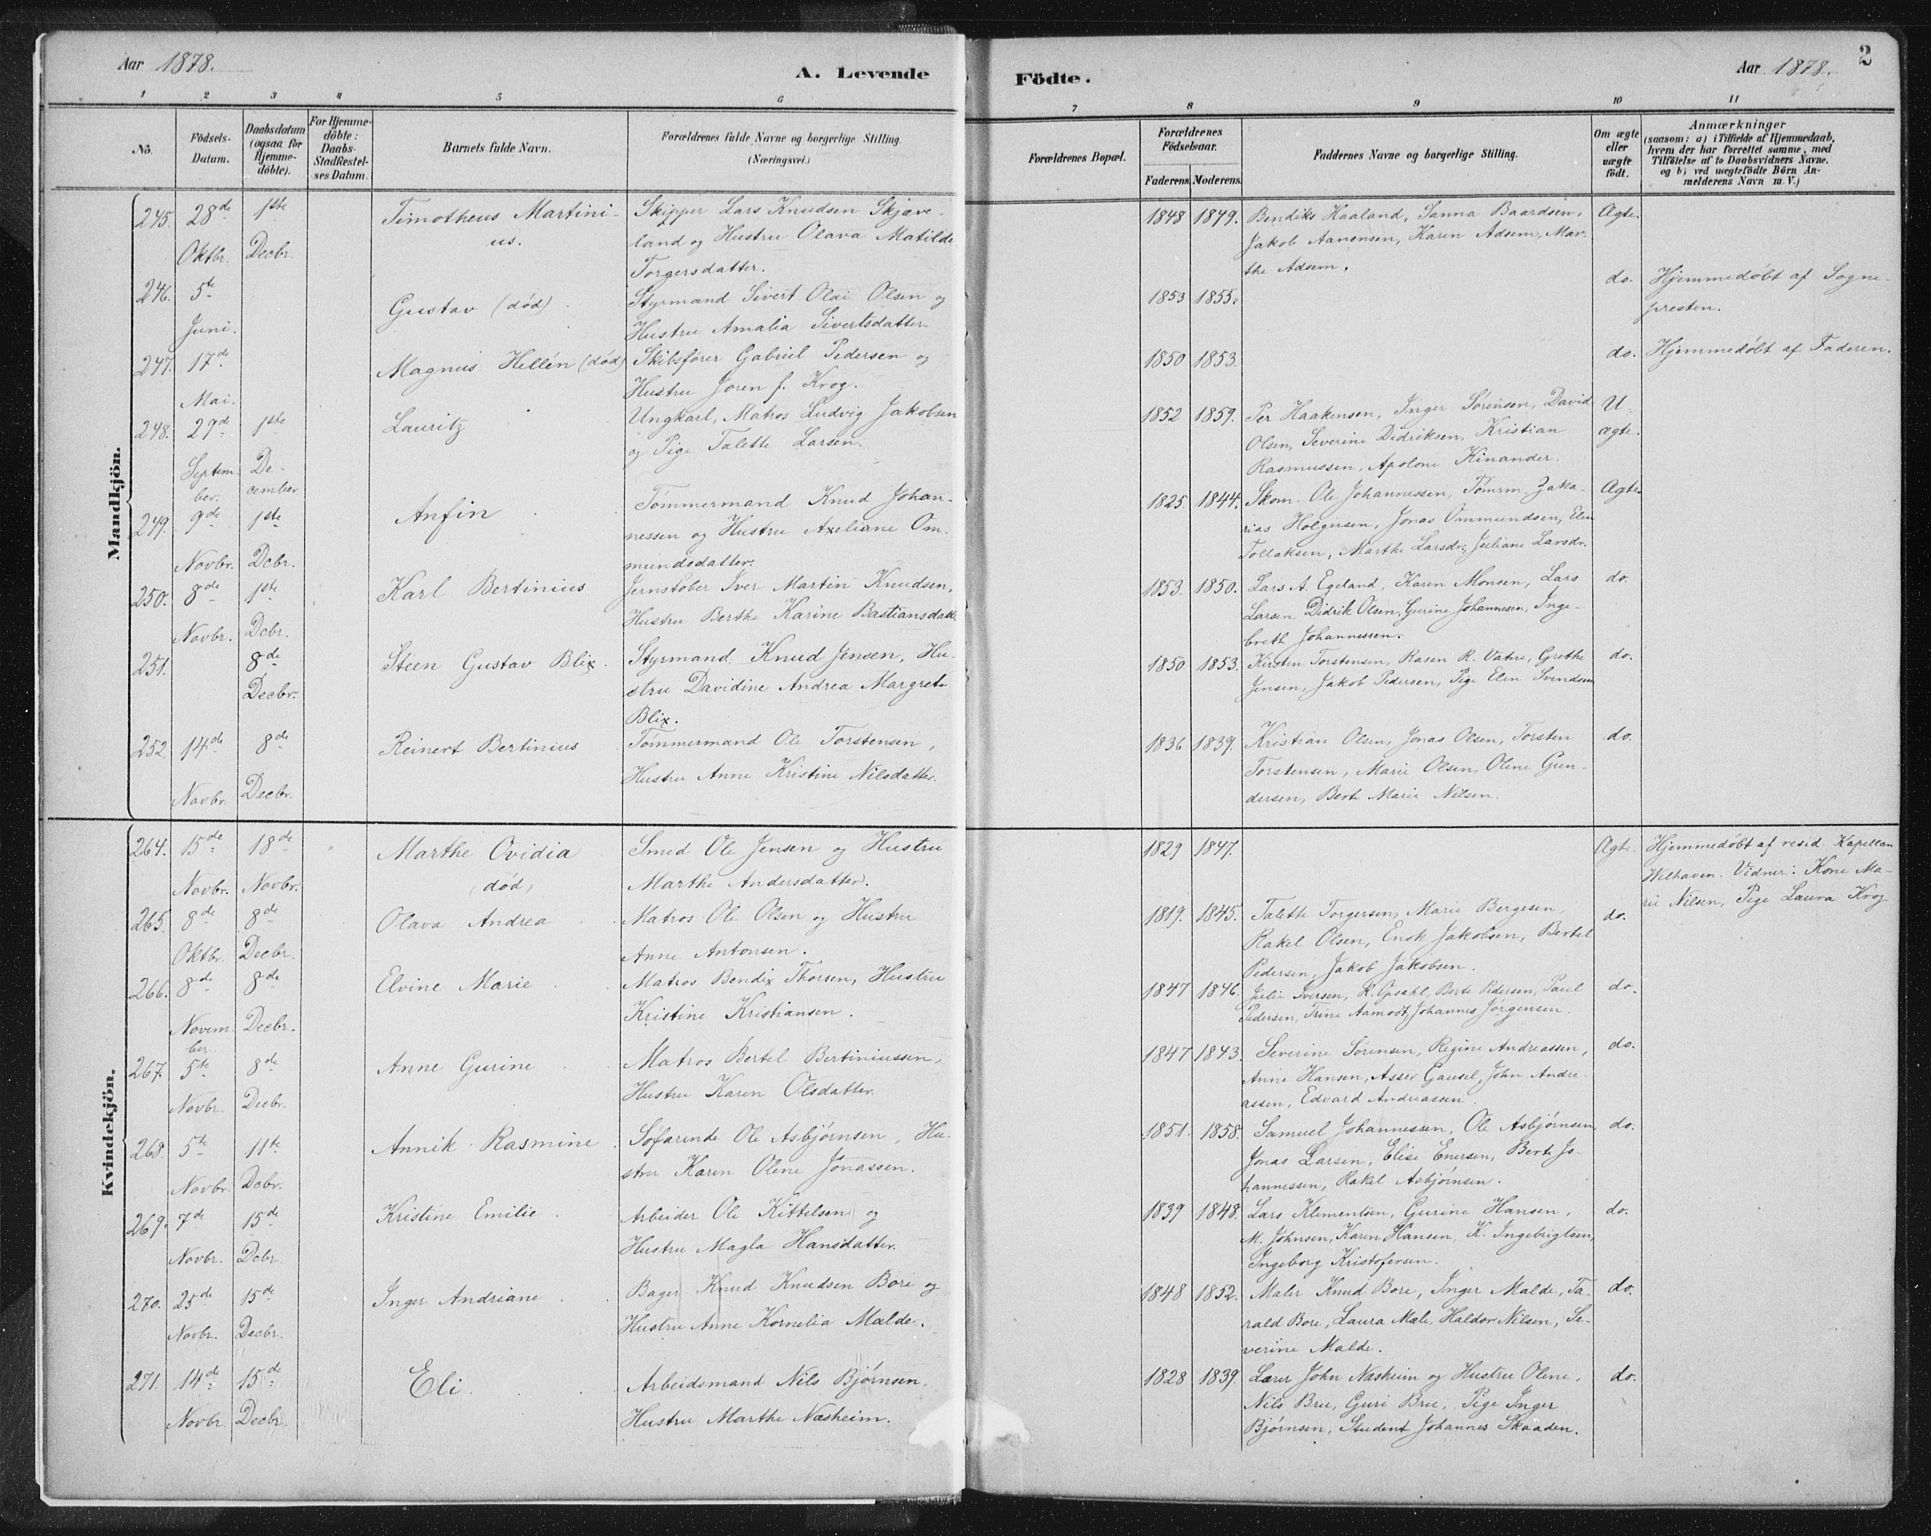 Aar 1878.
A. Levende
Födte.
Aar 1878.
2
1 2 3 4 5 6 7 8 9 10 11
No.
Födsels-
Datum.
Daabsdatum
(ogsaa for
Hjemme-
döbte).
For Hjemme-
döbte:
Daabs-
Stadfæstel-
ses Datum.
Barnets fulde Navn.
Forældrenes fulde Navne og borgerlige Stilling
(Næringsvei.)
Forældrenes Bopæl.
Forældrenes
Födselsaar.
Faderens. Moderens.
Faddernes Navne og borgerlige Stilling.
Om ægte
eller
uægte
födt.
Anmærkninger
(saasom: a) i Tilfælde af Hjemmedaab,
hvem der har forrettet samme, med
Tilföielse af to Daabsvidners Navne.
og b) ved uægtefödte Börn An-
melderens Navn m. V.)
Mandkjön.
245. 28de Oktbr. 1ste Decbr.
Timotheus Martini-
us.
Skipper Lars Knudsen Skjæve-
land og Hustru Olava Matilde
Torgersdatter.
1848 1849.
Bendiks Haaland, Sanna Baardsen,
Jakob Aanensen, Karen Adsem, Mar-
the Adsem.
Ægte.
246. 5te Juni.
Gustav (död)
Styrmand Sivert Olai Olsen og
Hustru Amalia Sivertsdatter
1853 1855.
do. Hjemmedøbt af Sogne-
presten.
247. 17de Mai.
Magnus Hellén (död)
Skibsfører Gabriel Pedersen og
Hustru Joren f. Krog.
1850 1853.
do. Hjemmedøbt af Faderen.
248. 29de Septem-
ber. 1ste De-
cember
Lauritz
Ungkarl, Matros Ludvig Jakobsen
og Pige Talette Larsen.
1852 1859.
Per Haakensen, Inger Sørensen, David
Olsen, Severine Didriksen, Kristian
Rasmussen, Apolone Kinander.
U-
ægte.
249. 9de Novbr. 1ste Dcbr.
Anfin
Tømmermand Knud Johan-
nessen og Hustru Axeliane Om-
mundsdatter.
1825 1844.
Skom. Ole Johannessen, Tømrm. Zaka-
rias Holgersen, Jonas Ommundsen, Elen
Tollaksen, Marthe Larsdr, Juliane Larsdr.
Ægte
250. 8de Novbr. 1ste Dcbr.
Karl Bertinius
Jernstøber Iver Martin Knudsen,
Hustru Berthe Karine Bastiansdatt.
1853 1850.
Lars A. Egeland, Karen Monsen, Lars
Larsen Didrik Olsen, Gurine Johannesen, Inge-
breth Johannessen.
do.
251. 8de Decbr.
Steen Gustav Blix.
Styrmand Knud Jensen, Hu-
stru Davidine Andrea Margrete
Blix.
1850 1853.
Kirsten Torstensen, Rasen R. Vatne, Grethe
Jensen, Jakob Pedersen, Pige Elen Svendsen
do.
252. 14de Novbr. 8de Decbr.
Reinert Bertinius
Tømmermand Ole Torstensen,
Hustru Anne Kristine Nilsdatter.
1836 1839.
Kristian Olsen, Jonas Olsen, Torsten
Torstensen, Marie Olsen, Olene Gun-
dersen, Berte Marie Nilsen.
do.
Kvindekjön.
264. 15de Novbr. 18de Novbr.
Marthe Ovidia
(död)
Smed Ole Jensen og Hustru
Marthe Andersdatter.
1829 1847.
Ægte.
Hjemmedøbt af resid. Kapellan
Welhaven. Vidner: Kone Ma-
rie Nilsen, Pige Laura Krog
265. 8de Oktbr. 8de Decbr.
Olava Andrea
Matros Ole Olsen og Hustru
Anne Antonsen.
1819. 1845.
Talette Torgersen, Marie Bergesen,
Rakel Olsen, Enok Jakobsen, Bertel
Pedersen, Jakob Jakobsen.
do.
266. 8de Novem-
ber 8de Decbr.
Elvine Marie
Matros Bendix Thorsen, Hustru
Kristine Kristiansen.
1847 1846.
Julie Iversen, R. Opsahl, Berte Pedersen, Paul
Pedersen, Trine Aamodt, Johannes Jørgensen
do.
267. 5te Novbr. 8de Decbr.
Anne Gurine
Matros Bertel Bertiniussen,
Hustru Karen Olsdatter.
1847 1843.
Severine Sørensen, Regine Andreassen,
Anne Hansen, Asser Gausel, John Andre-
assen, Edvard Andreassen.
do.
268. 5te Novbr. 11te Dcbr.
Annik Rasmine
Søfarende Ole Asbjørnsen, Hu-
stru Karen Olene Jonassen.
1851. 1858.
Samuel Johannessen, Ole Asbjørnsen
Jonas Larsen, Elise Enersen, Berte Jo-
hannessen, Rakel Asbjørnsen.
do.
269. 7de Novbr. 15de Dcbr.
Kristine Emilie
Arbeider Ole Kittelsen og
Hustru Magla Hansdatter.
1839 1848.
Lars Klementsen, Gurine Hansen,
M. Johnsen, Karen Hansen, K. Ingebrigtsen,
Ingeborg Kristofersen.
do.
270. 25de Novbr. 15de Decbr.
Inger Andriane
Bager Knud Knudsen Bore og
Hustru Anne Kornelia Malde.
1848 1852.
Maler Knud Bore, Inger Malde, Ta-
rald Bore, Laura Mæle, Haldor Nilsen, Se-
verine Malde.
do.
271. 14de Novbr. 15de Decbr.
Eli
Arbeidsmand Nils Bjørnsen,
Hustru Marthe Næsheim.
1828 1839.
Lærer John Næsheim og Hustru Olene,
Nils Bru, Guri Bru, Pige Inger
Bjørnsen, Student Johannes Skaaden.
do.